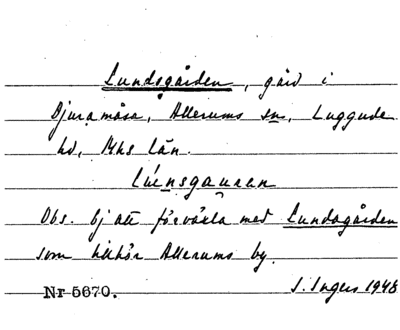 Lundsgården, gård i
Djuramåsa, Allerums sn, Luggude
hd, Mhs län.
Obs. Ej att förväxla med Lundagården
som tillhör Allerums by.
Nr 5670. I. Ingers 1948